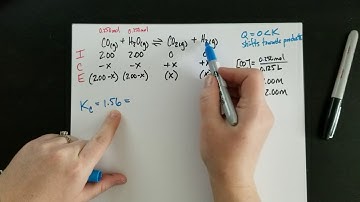 0.250mol 0.250mol
CO(g) + H2O(g) ⇌ CO2(g) + H2(g)
I 2.00 2.00 0
C -x -x +x +x
E (2.00-x) (2.00-x) (x) (x
Kc = 1.56 =
Q = 0 < K
shifts towards products
0.250mol
0.125L
.00M
2.00M